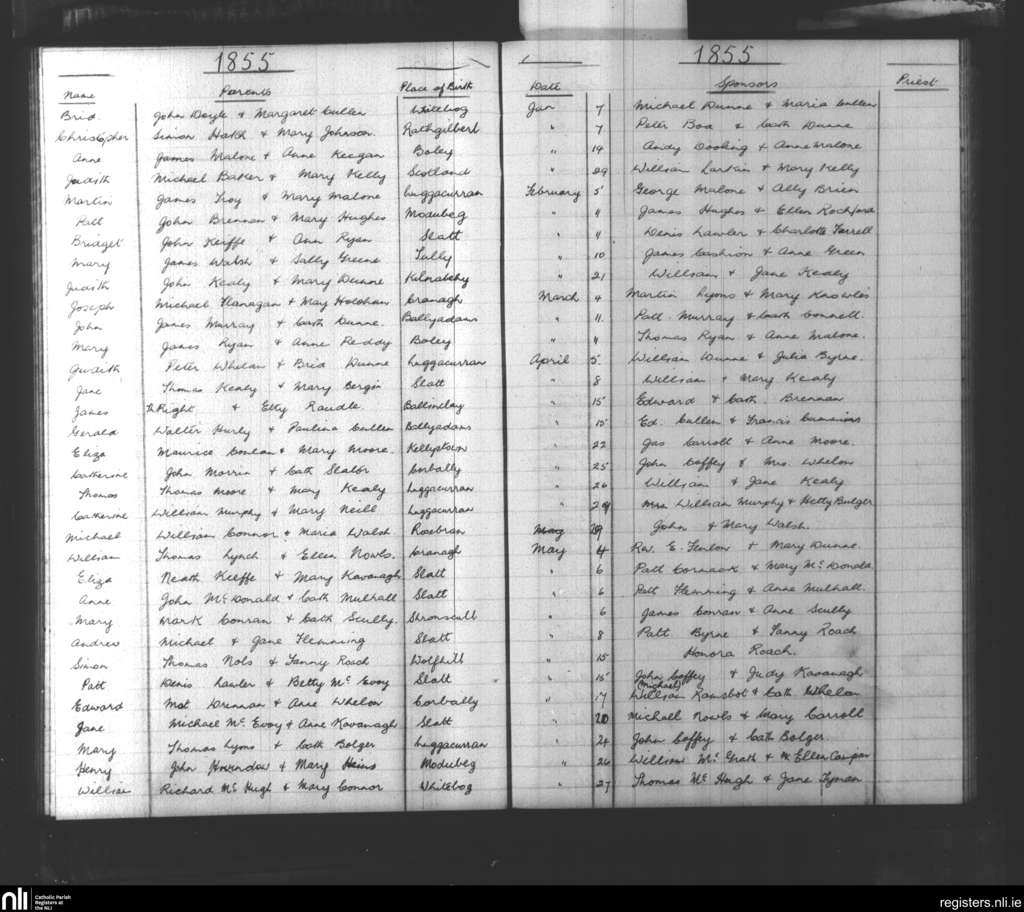 1855 1855
Name Parents Place of Birth Date Sponsors Priest
Brid. John Doyle & Margaret Cullen Whitebog Jan 7 Michael Dunne & Maria Cullen
Christopher Simon Hatch & Mary Johnson. Rathgilbert " 7 Peter Boa & Cath Dunne
Anne James Malone & Anne Keegan Boley " 19 Andy Dooling & Anne Malone
Judith Michael Baker & Mary Kelly Scotland " 29 William Larkin & Mary Kelly
Martin James Troy & Mary Malone Luggacurran February 5 George Malone & Ally Brien
Patt John Brennan & Mary Hughes Modubeg " " James Hughes & Ellen Rochford
Bridget John Keiffe & Ann Ryan Slatt " " Denis Lawler & Charlotte Farrell
Mary James Walsh & Sally Greene Tully " 10 James Cashion & Anne Green
Judith John Kealy & Mary Dunne Kilnatchy " 21 William & Jane Kealy
Joseph Michael Flanagan & May Holohan Cranagh March 4 Martin Lyons & Mary Knowles
John James Murray & Cath Dunne. Ballyadams " 11. Patt Murray & Cath Connell
Mary James Ryan & Anne Reddy Boley " " Thomas Ryan & Anne Malone.
Judith Peter Whelan & Brid Dunne Luggacurran April 5 William Dunne & Julia Byrne.
Jane Thomas Kealy & Mary Bergin Slatt " 8 William & Mary Kealy
James Th Right & Elty Raudle Ballinclay " 15 Edward & Cath Brennan
Gerald Walter Hurly & Paulina Cullen Ballyadams " 15 Ed. Cullen & Francis
Eliza Maurice Conlan & Mary Moore. Kellystown " 22 Jas Carroll & Anne Moore.
Catherine John Morrin & Cath Slator Corbally " 25 John Coffey & Mrs. Whelan
Thomas Thomas Moore & Mary Kealy Luggacurran " 26 William & Jane Kealy
Catherine William Murphy & Mary Neill Luggacurran " 29 Mrs William Murphy & Hetty Bulger
Michael William Connor & Maria Walsh Rosebran May 29 John & Mary Walsh.
William Thomas Lynch & Ellen Nowls. Cranagh May 4 Rev. E. Fenlow & Mary Dunne.
Eliza Neath Keiffe & Mary Kavanagh Slatt " 6 Patt Cormack & Mary McDonald
Anne John McDonald & Cath Mulhall Slatt " 6 Patt Flemming & Anne Mulhall.
Mary Mark Conran & Cath Scully. Shronscull " 6 James Conran & Anne Scully
Andrew Michael & Jane Flemming Slatt " 8 Patt Byrne & Fanny Roach
Simon Thomas Nols & Fanny Roach Wolfhill " 15 Honora Roach.
Patt Denis Lawler & Betty McEvoy Slatt " 15 John Coffey & Judy Kavanagh
(Michael)
Edward Mat Drennan & Anne Whelan Corbally " 17 William Ramsbot & Cath Whelan
Jane Michael McEvoy & Anne Kavanagh Slatt " 20 Michall Nowls & Mary Carroll
Mary Thomas Lyons & Cath Bolger Luggacurran " 24 John Coffey & Cath Bolger.
Henry John Hovendow & Mary Heins Modubeg " 26 William McGrath & Ellen
William Richard McHugh & Mary Connor Whitebog " 27 Thomas McHugh & Jane Tynan
nli Catholic Parish
Registers at
the NLI
registers.nli.ie